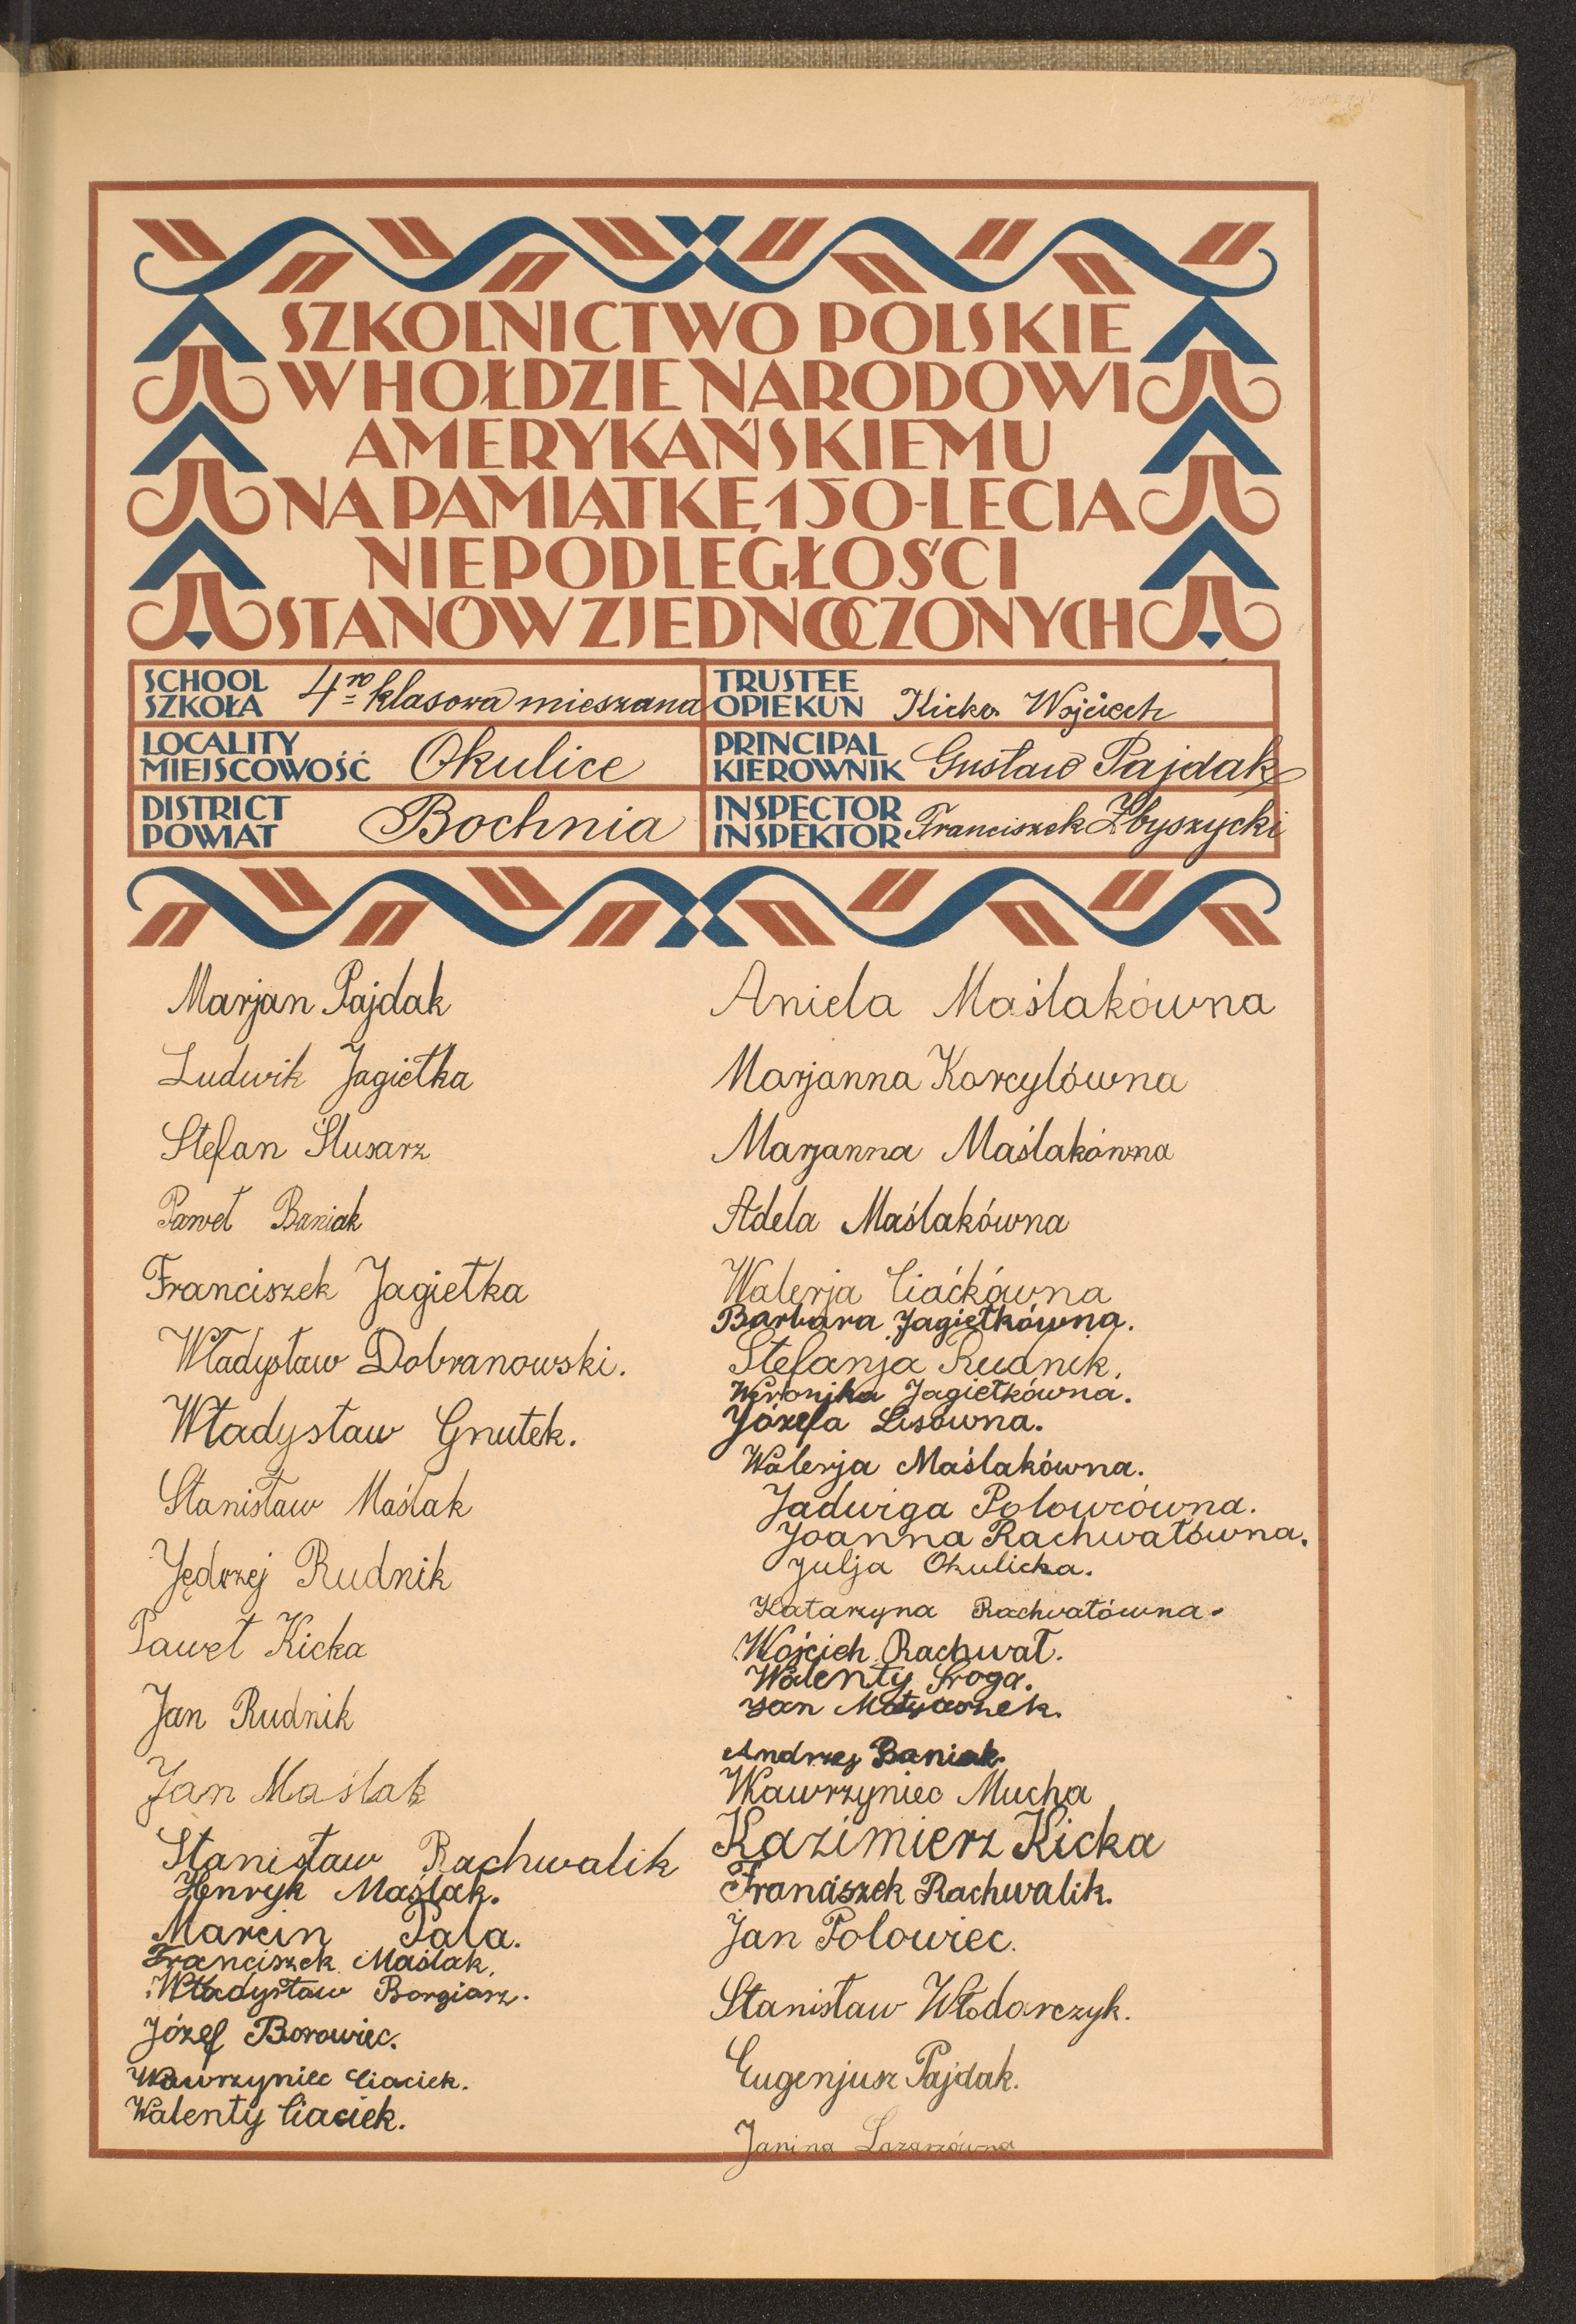 SZKOLNICTWO POLSKIE
W HOŁDZIE NARODOWI
AMERYKAŃSKIEMU
NA PAMIĄTKĘ 150-LECIA
NIEPODLEGŁOŚCI
STANÓW ZJEDNOCZONYCH
SCHOOL
SZKOŁA 4ro klasowa mieszana
TRUSTEE
OPIEKUN Kicka Wojciech
LOCALITY
MIEJSCOWOŚĆ Okulice
PRINCIPAL
KIEROWNIK Gustaw Pajdak
DISTRICT
POWIAT Bochnia
INSPECTOR
INSPEKTOR Franciszek Zbyszycki
Marjan Pajdak
Ludwik Jagiełka
Stefan Ślusarz
Paweł Baniak
Franciszek Jagiełka
Władysław Dobranowski.
Władysław Gnutek.
Stanisław Maślak
Jędrzej Rudnik
Paweł Kicka
Jan Rudnik
Jan Maślak
Stanisław Rachwalik
Henryk Maślak.
Marcin Pala.
Franciszek Maślak.
Władysław Borgiasz.
Józef Borowiec.
Wawrzyniec Ciaciek.
Walenty Ciaciek.
Aniela Maślakówna
Marjanna Korcylówna
Marjanna Maślakówna
Adela Maślakówna
Walerja Ciaćkówna
Barbara Jagiełkówna.
Stefanja Rudnik.
Weronjka Jagiełkówna.
Józefa Lisówna.
Walerja Maślakówna.
Jadwiga Polowcówna.
Joanna Rachwałówna.
Julja Okulicka.
Katarzyna Rachwałówna.
Wojcich Rachwał.
Walenty Sroga.
Jan
Andrzej Baniak.
Wawrzyniec Mucha
Kazimierz Kicka
Franciszek Rachwalik.
Jan Polowiec.
Stanisław Włodarczyk.
Eugenjusz Pajdak.
Janina Lazarzówna